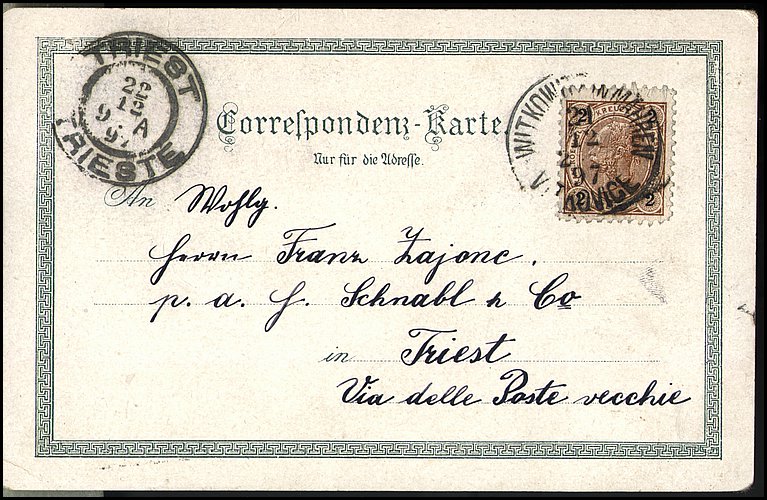 TRIEST
22
12
9 A
97
TRIESTE
WITKOWITZ IN MÄHREN
12
97
VITKOVICE
KREUZER
2 2
2 2
Correſpondenz-Karte.
Nur für die Adreſſe.
An Wohlg.
Herrn Franz Zajonc.
p. a. H. Schnabl & Co
in Triest
Via delle Poste vecchie